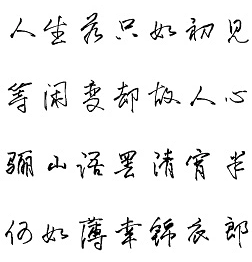 人生若只如初见
等闲变却故人心
骊山语罢清宵半
何如薄幸锦衣郎